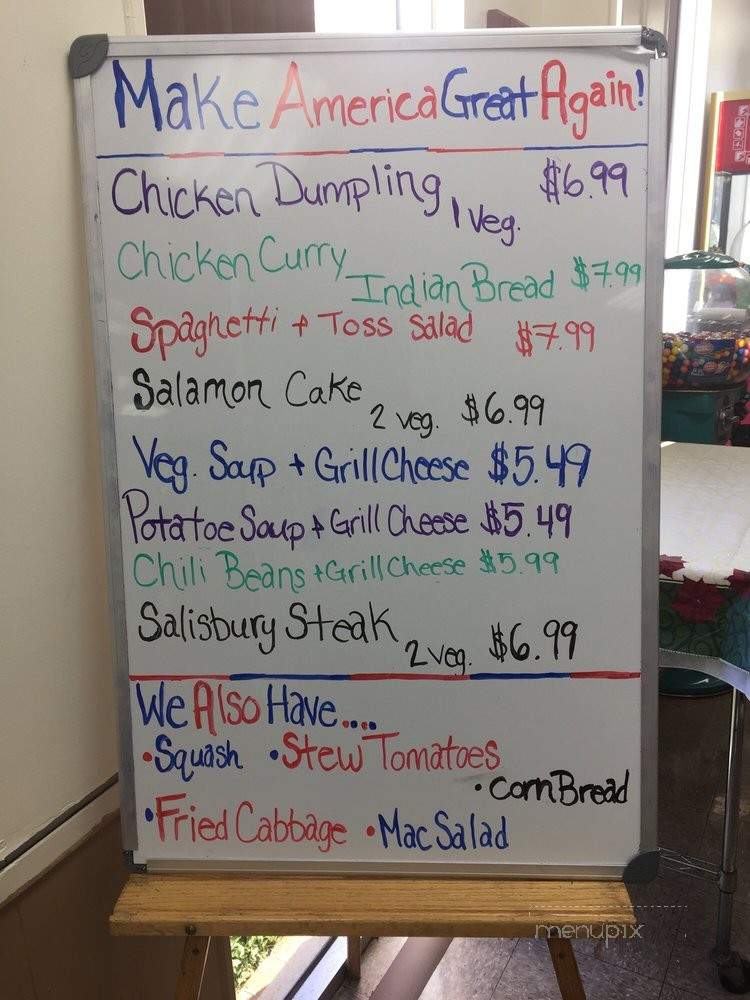 Make America Great Again!
Chicken Dumpling 1 Veg. $6.99
Chicken Curry Indian Bread $7.99
Spaghetti + Toss Salad $7.99
Salamon Cake 2 veg. $6.99
Veg. Soup + Grill Cheese $5.49
Potatoe Soup + Grill Cheese $5.49
Chili Beans + Grill Cheese $5.99
Salisbury Steak 2 veg. $6.99
We Also Have....
• Squash • Stew Tomatoes
• Corn Bread
• Fried Cabbage • Mac Salad
menupix